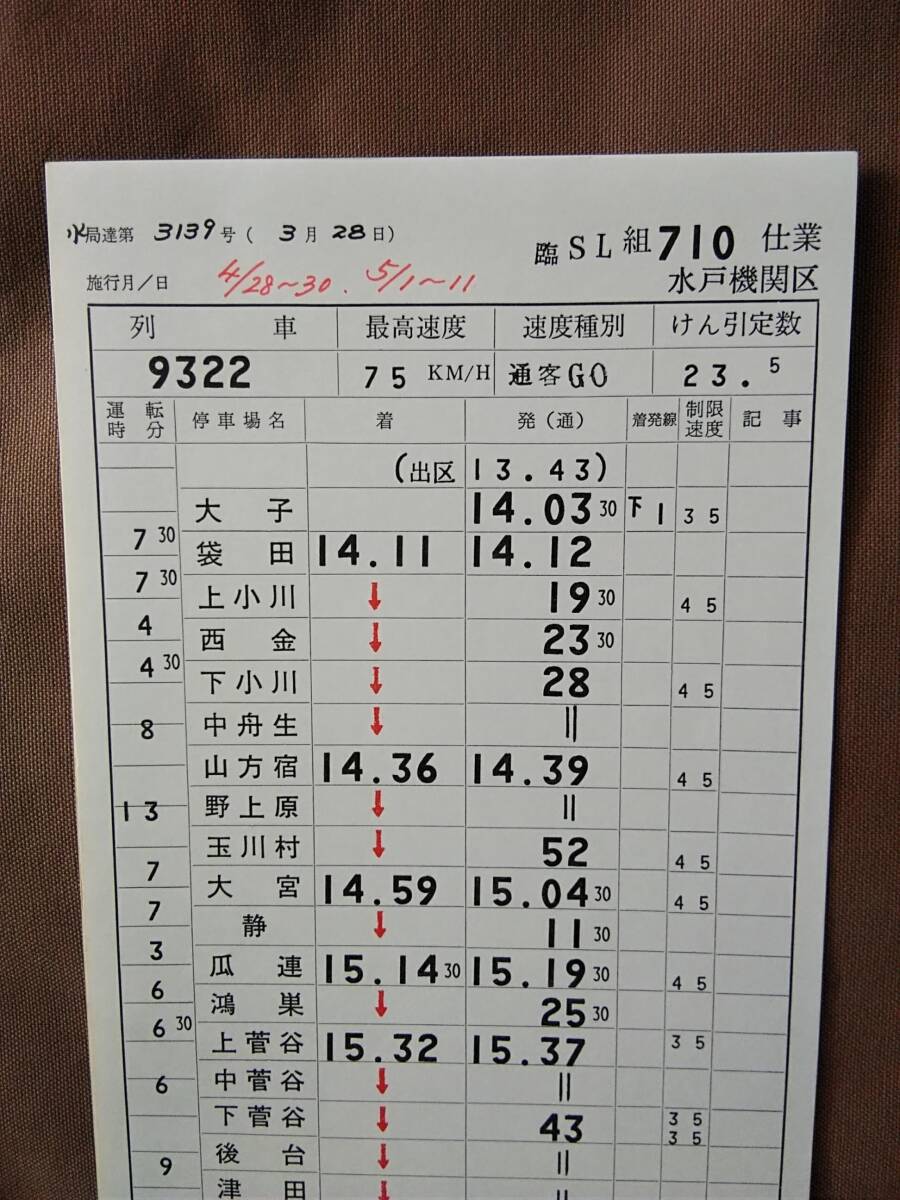 水局達第 3139号( 3月 28日)
臨SL組710仕業
施行月/日 4/28~30. 5/1~11
水戸機関区
列 車 最高速度 速度種別 けん引定数
9322 75 KM/H 通客G0 23.5
運転時分 停車場名 着 発(通) 着発線 制限速度 記事
(出区 13.43)
大子 14.03 30 下1 35
7 30
袋田 14.11 14.12
7 30
上小川 ↓ 19 30 45
4
西金 ↓ 23 30
4 30
下小川 ↓ 28 45
8 中舟生 ↓ ||
山方宿 14.36 14.39 45
13 野上原 ↓ ||
玉川村 ↓ 52 45
7
大宮 14.59 15.04 30 45
7
静 ↓ 11 30
3
瓜連 15.14 30 15.19 30 45
6
鴻巣 ↓ 25 30
6 30
上菅谷 15.32 15.37 35
6 中菅谷 ↓ ||
下菅谷 ↓ 43 35 35
9 後台 ↓ ||
津田 ↓ ||